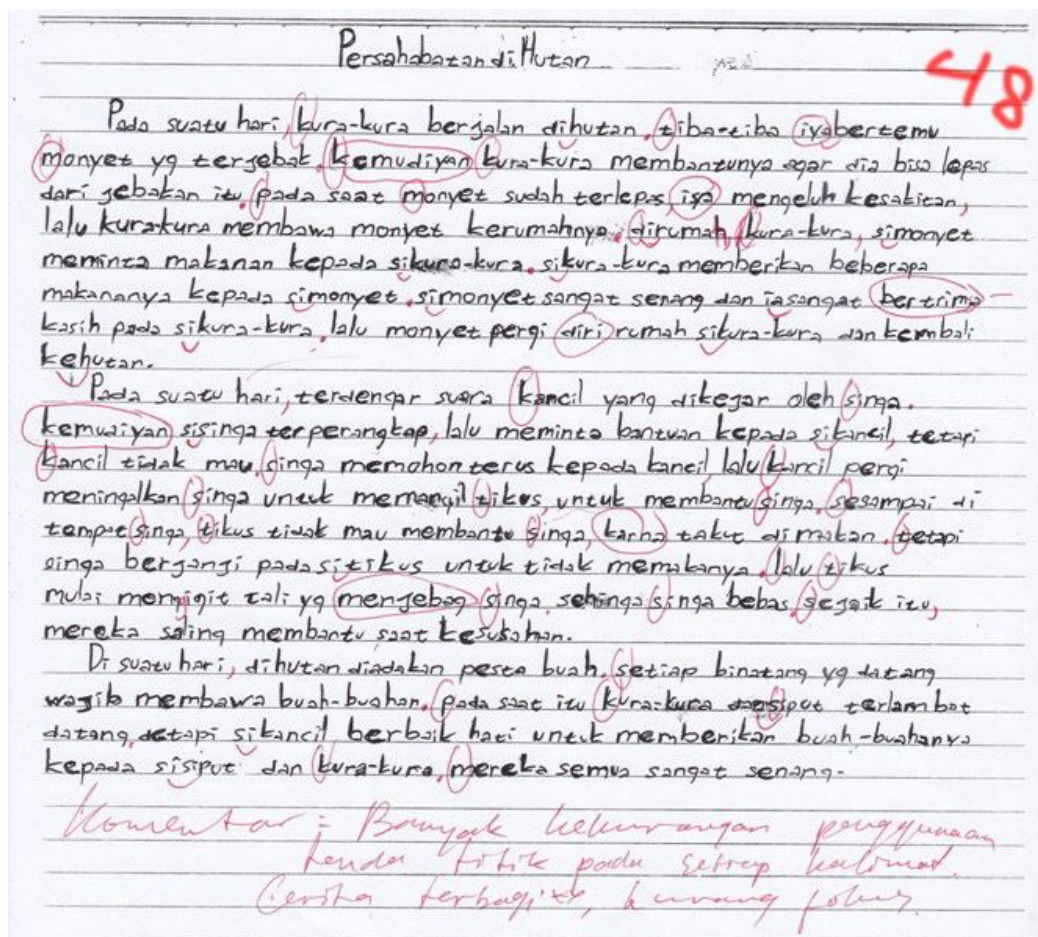 Persahabatan di Hutan
48
Pada suatu hari, kura-kura berjalan dihutan. tiba-tiba iya bertemu
monyet yg terjebak. kemudiyan kura-kura membantunya agar dia bisa lepas
dari jebakan itu. pada saat monyet sudah terlepas, iya mengeluh kesakitan,
lalu kura-kura membawa monyet kerumahnya. dirumah kura-kura, simonyet
meminta makanan kepada sikura-kura. sikura-kura memberikan beberapa
makananya kepada simonyet. simonyet sangat senang dan ia sangat bertrima
kasih pada sikura-kura. lalu monyet pergi diri rumah sikura-kura dan kembali
kehutan.
Pada suatu hari, terdengar suara kancil yang dikejar oleh singa.
kemudiyan sisinga terperangkap, lalu meminta bantuan kepada sikancil, tetapi
kancil tidak mau. singa memohon terus kepada kancil lalu kancil pergi
meningalkan singa untuk memangil tikus, untuk membantu singa. sesampai di
tempat singa, tikus tidak mau membantu singa, karna takut dimakan. tetapi
singa berjanji pada sitikus untuk tidak memakanya. lalu tikus
mulai mengigit tali yg menjebag singa. sehinga singa bebas. sejaik itu,
mereka saling membantu saat kesusahan.
Di suatu hari, dihutan diadakan pesta buah. setiap binatang yg datang
wajib membawa buah-buahan. pada saat itu kura-kura siput terlambat
datang. tetapi sikancil berbaik hati untuk memberikan buah-buahanya
kepada sisiput dan kura-kura. mereka semua sangat senang.
Komentar : Banyak kekurangan penggunaan
tanda titik pada setiap kalimat.
Cerita terbagi, kurang fokus.